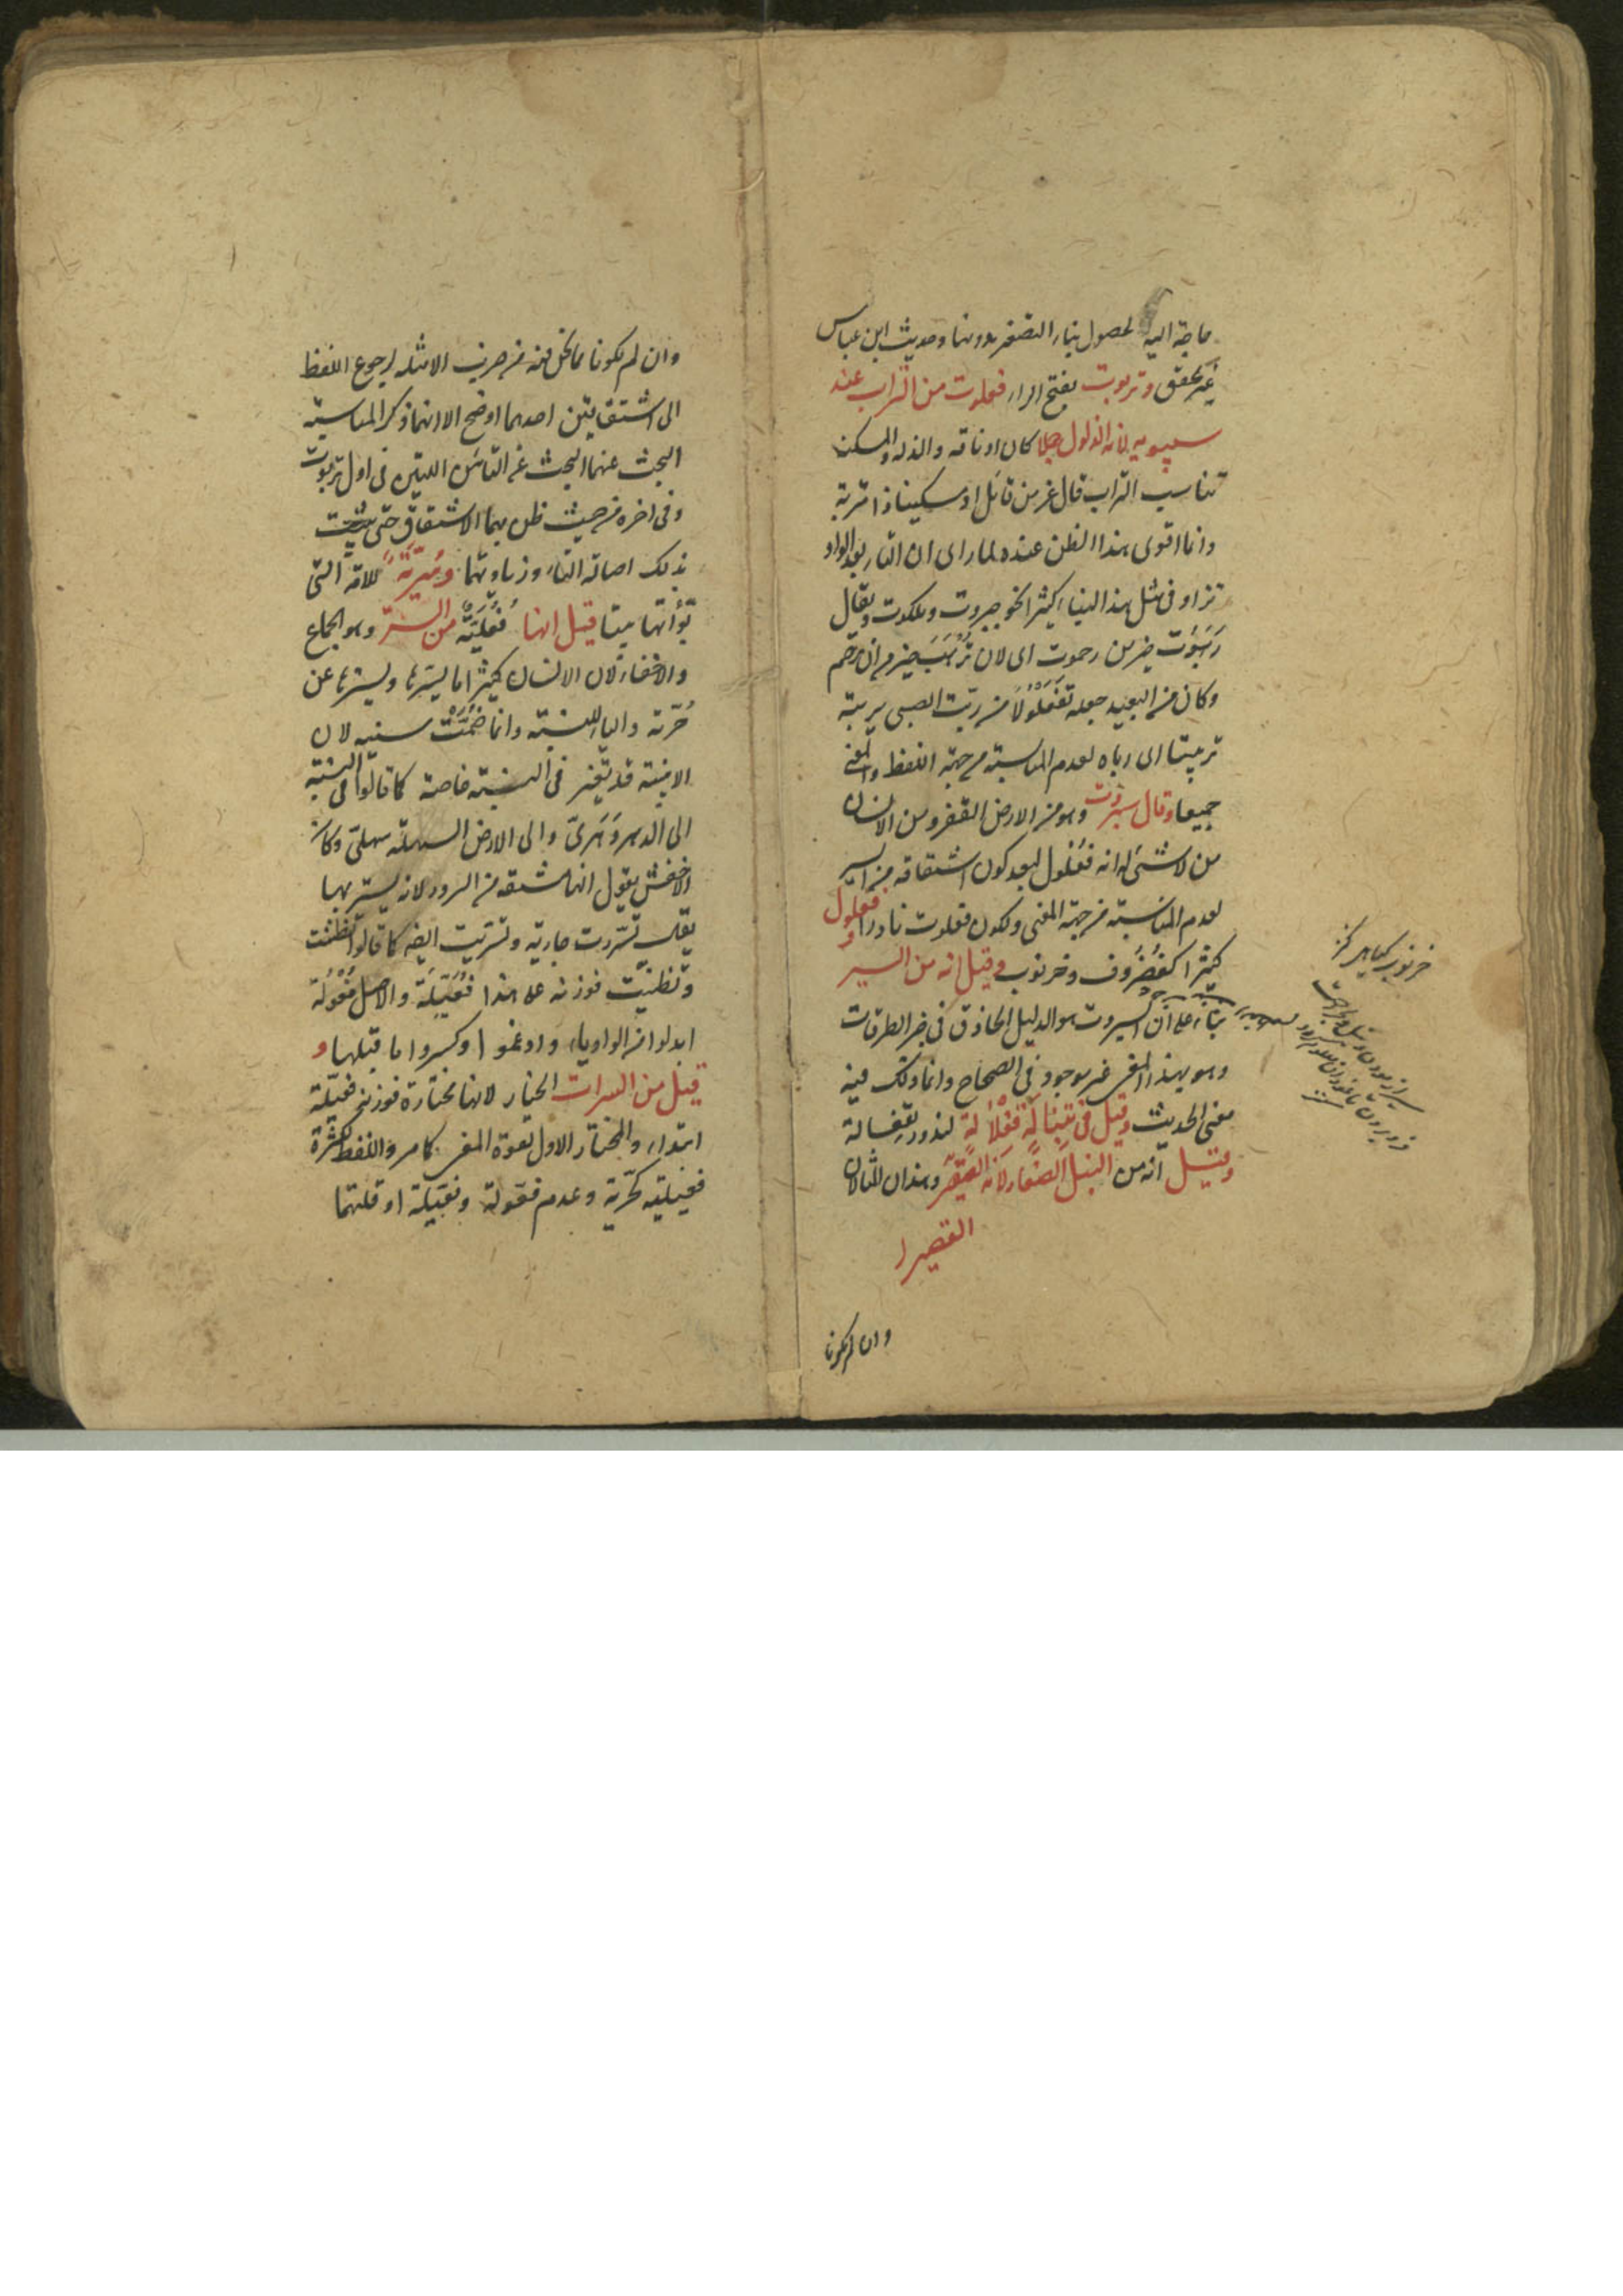 حاجة اليه لحصول بناء التصغير بدونها وحديث ابن عباس
غير محقق وتربوت بفتح الراء فعلوت من التراب عند
سيبويه لانه الذلول جملا كان او ناقة والذلة والمسكنة
تناسب التراب قال عز من قائل او مسكينا ذا متربة
وانما قوى هذا الظن عنده لما راى ان التاء بعد الواو
تزاد فى مثل هذا البناء كثيرا نحو جبروت وملكوت ويقال
رَهَبُوت خير من رحموت اى لان تُرْهَب خير من ان ترحم
وكان من البعيد جعله تَفْعَلُولًا من ربّت الصبى يربته
تربيتا اى رباه لعدم المناسبة من جهة اللفظ والمعنى
جميعا وقال سبروت وهو من الارض القفر ومن الانسان
من لا شئ له انه فعلول لبعد كون اشتقاقه من السبر
لعدم المناسبة من جهة المعنى ولكون فعلوت نادرا وفعلول
كثيرا كغُضْرُوف وخرنوب وقيل انه من السبر
بناء على ان السبروت هو الدليل الحاذق فى خبر الطرقات
وهو بهذا المعنى غير موجود فى الصحاح وانما ذلك فيه
معنى الخريت وقيل فى تِنْبَالَة فِعْلَالَة لندور تِفعالة
وقيل انه من النبل الصغار لانه القصير وهذان المثالان
القصير
وان لم يكونا
خرنوب
وان لم يكونا مما نحن فيه من حيث الامثلة لرجوع اللفظ
الى اشتقاقين احدهما اوضح الا انهما ذكرا لمناسبة
البحث عنهما البحث عن التائين اللتين فى اول تربوت
وفى اخره من حيث ظن بهما الاشتقاق حتى يثبت
بذلك اصالة التاء وزيادتهما وسُرّيّة للامة التى
بوّأتها بيتا قيل انها فُعْلِيَّة من السرّ وهو الجماع
والاخفاء لان الانسان كثيرا ما يسرّها ويسترها عن
حُرّته والياء للنسبة وانما ضُمّت سينه لان
الابنية قد تغير فى النسبة خاصة كما قالوا فى النسبة
الى الدهر دُهرىّ والى الارض السهلة سهلىّ وكان
الاخفش يقول انها مشتقة من السرور لانه يسر بها
يقال تسررت جارية وتسريت ايضا كما قالوا تظننت
وتظنيت فوزنه على هذا فُعّيلة والاصل فُعّولة
ابدلوا من الواو ياء وادغموا وكسروا ما قبلها و
قيل من السراة الخيار لانها مختارة فوزنه فعيلة
ابتداء والمختار الاول لقوة المعنى كما مر واللفظ لكثرة
فعلية كحُرّية وعدم فعّولة وفعّيلة او قلتهما